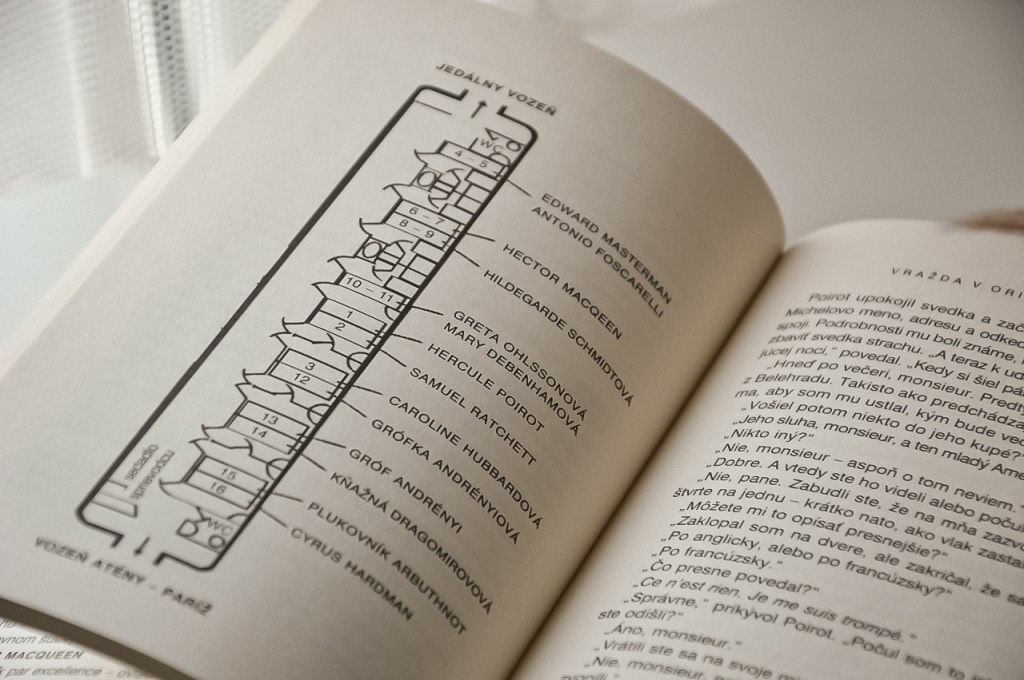 JEDÁLNY VOZEŇ
WC
4 – 5
6 – 7
8 – 9
10 – 11
1
2
3
12
13
14
15
16
WC
EDWARD MASTERMAN
ANTONIO FOSCARELLI
HECTOR MACQUEEN
HILDEGARDE SCHMIDTOVÁ
GRETA OHLSSONOVÁ
MARY DEBENHAMOVÁ
HERCULE POIROT
SAMUEL RATCHETT
CAROLINE HUBBARDOVÁ
GRÓFKA ANDRÉNYIOVÁ
GRÓF ANDRÉNYI
KŇAŽNÁ DRAGOMIROVOVÁ
PLUKOVNÍK ARBUTHNOT
CYRUS HARDMAN
sedadlo
sprievodcu
VOZEŇ ATÉNY – PARÍŽ
MACQUEEN
par excellence –
VRAŽDA V
Poirot upokojil svedka a
Michelovo meno, adresu a
spoji. Podrobnosti mu boli známe,
zbaviť svedka strachu. „A teraz k
júcej noci,“ povedal. „Kedy si šiel
„Hneď po večeri, monsieur.
z Belehradu. Takisto ako
ma, aby som mu ustlal, kým bude
„Vošiel potom niekto do jeho kupé?“
„Jeho sluha, monsieur, a ten mladý
„Nikto iný?“
„Nie, monsieur – aspoň o tom neviem.
„Dobre. A vtedy ste ho videli alebo
„Nie, pane. Zabudli ste, že na mňa
štvrte na jednu – krátko nato, ako vlak
„Môžete mi to opísať presnejšie?“
„Zaklopal som na dvere, ale zakričal, že
„Po anglicky, alebo po francúzsky?“
„Po francúzsky.“
„Čo presne povedal?“
„Ce n'est rien. Je me suis trompé.“
„Správne,“ prikývol Poirot. „Počul som to
ste odišli?“
„Áno, monsieur.“
„Vrátili ste sa na svoje
„Nie, monsieur,